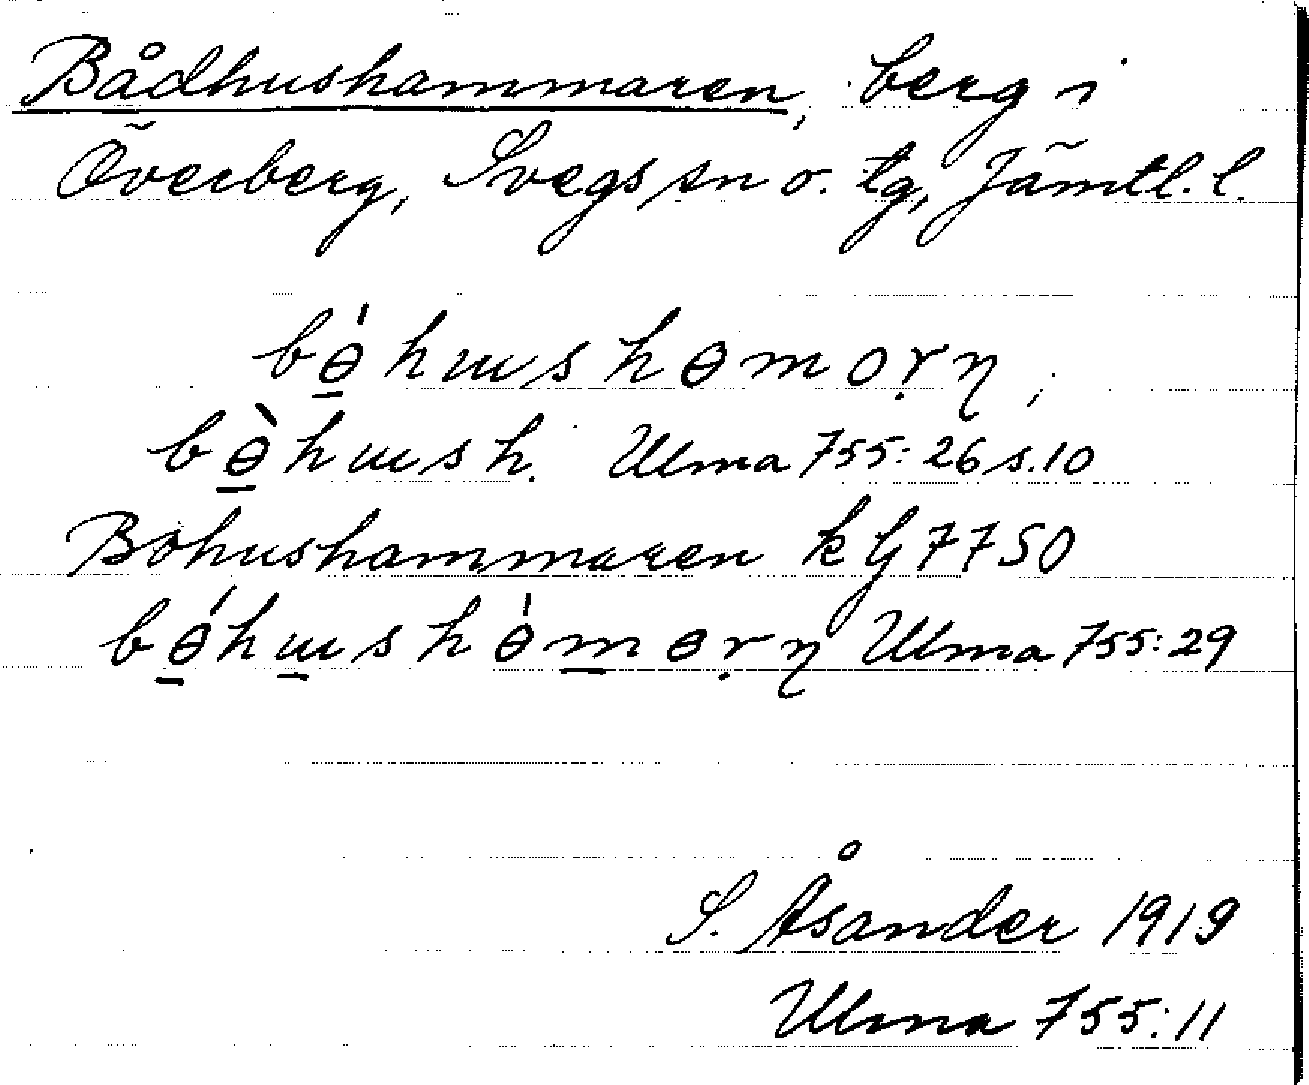 Bådhushammaren, berg i
Överberg, Svegs sn o. tg, Jämtl. l.
bɵ̱́hɯshɵmoṛƞ;
bɵ̱̀hɯsh. Ulma 755:26 s.10
Bohushammaren k G 7750
bɵ̱́hɯ̱shɵ̀m̱ɵṛƞ Ulma 755:29
S. Åsander 1919
Ulma 755:11